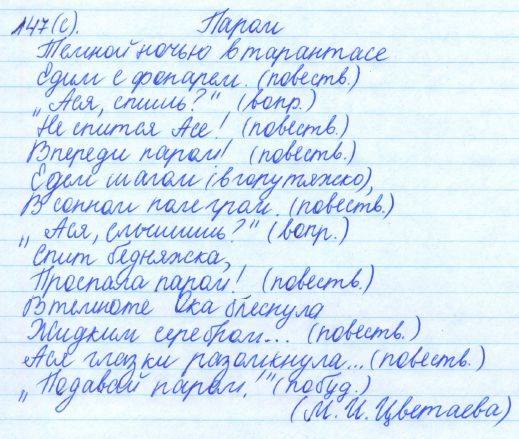 147(с). Паром
Темной ночью в тарантасе
Едим с фонарем. (повеств.)
"Ася, спишь?" (вопр.)
Не спится Асе! (повеств.)
Впереди паром! (повеств.)
Едем шагом (в гору тяжко),
В сонном поле гром. (повеств.)
"Ася, слышишь?" (вопр.)
Спит бедняжка,
Проспала паром! (повеств.)
В темноте Ока блеснула
Жидким серебром... (повеств.)
Ася глазки разомкнула... (повеств.)
"Подавай паром!" (побуд.)
(М.И.Цветаева)